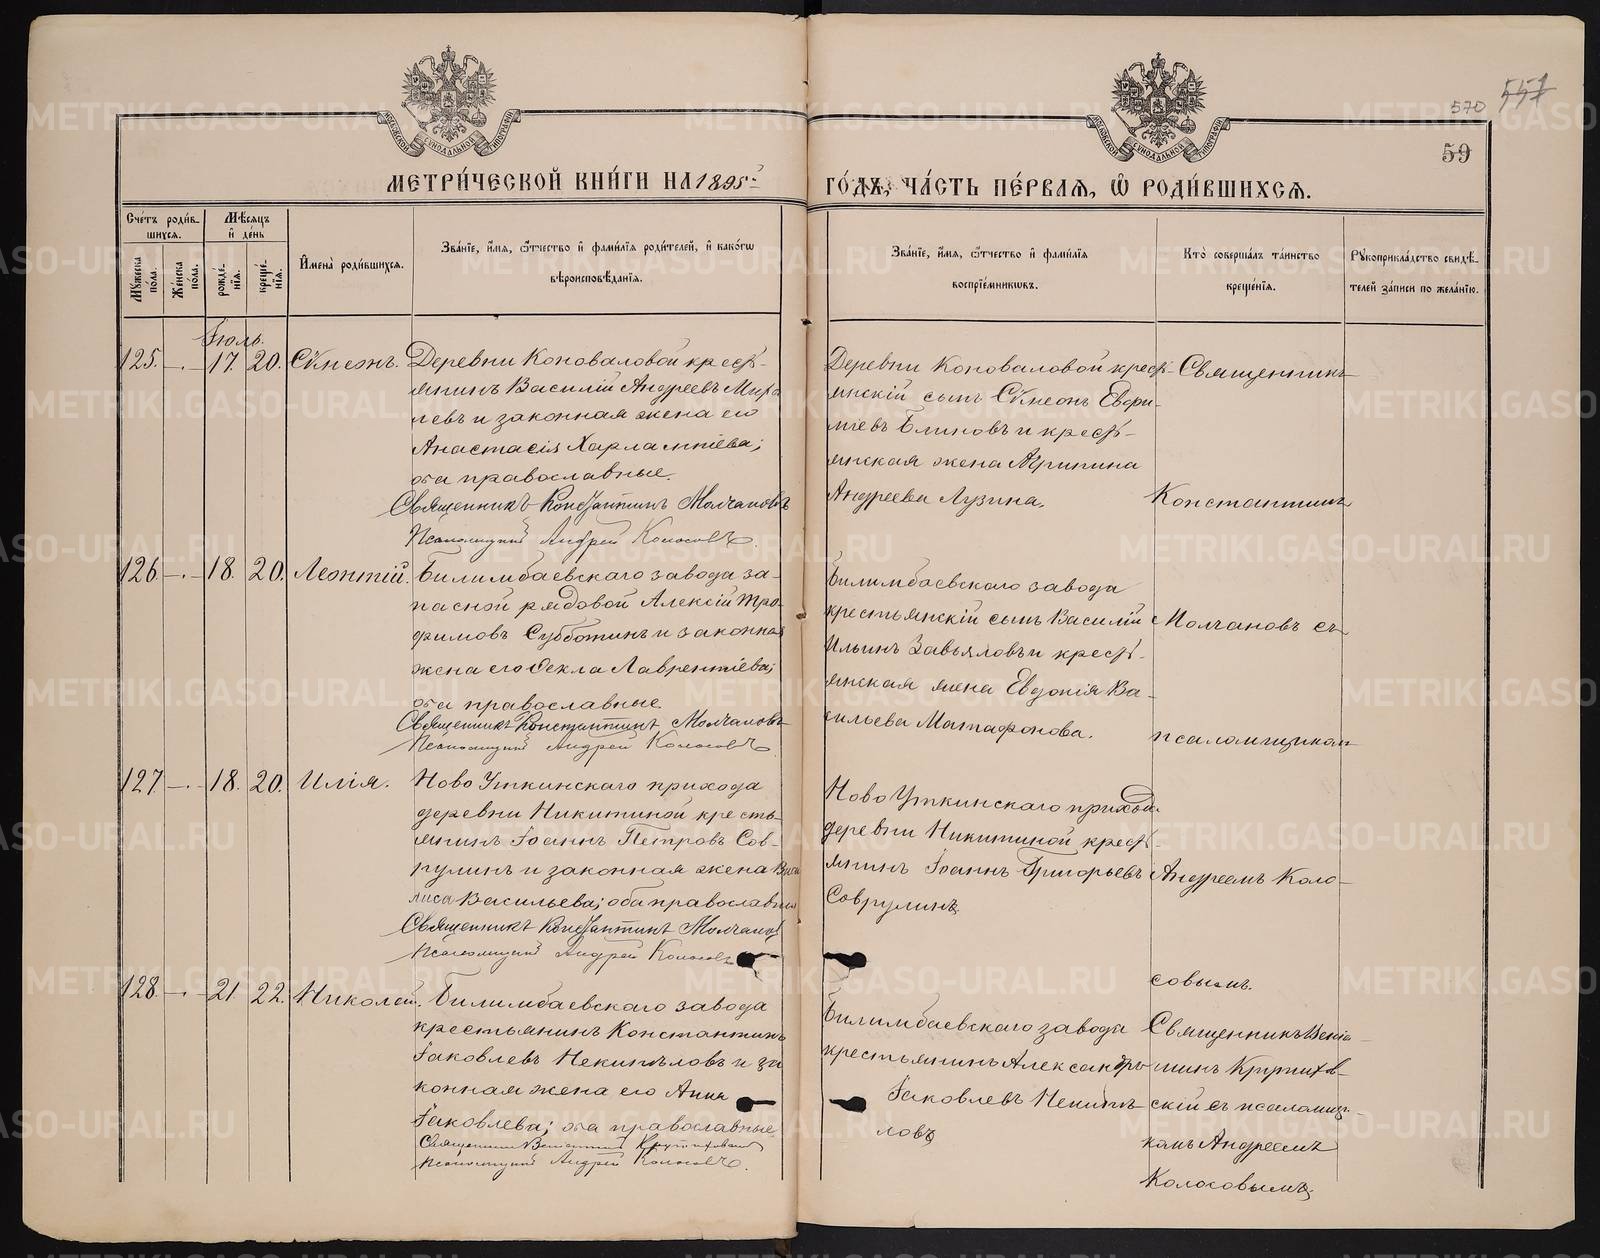 570 557
59
МЕТРИ́ЧЕСКОЙ КНИ́ГИ НА 1895й
ГО́ДЪ, ЧА́СТЬ ПЕ́РВАЯ, Ѡ РОДИ́ВШИХСЯ.
Сче́тъ роди́в-
шихся.
Мꙋжеска пола.
Же́нска пола.
Мѣ́сяцъ и де́нь
рожде́-
нїя.
креще́-
нїя.
Имена̀ роди́вшихся.
Зва́нїе, и́мя, ѻ́тчество и фами́лїя роди́телей, и како́гѡ
вѣроисповѣ́данїя.
Зва́нїе, и́мя, ѻ́тчество и фами́лїя
воспрїе́мникѡвъ.
Кто̀ соверша́лъ та́инство
креще́нїя.
Рꙋкоприкла́дство свидѣ́-
телей за́писи по жела́нїю.
Іюль.
125. 17. 20. Сѵмеонъ.
Деревни Коноваловой крест-
янинъ Василій Андреевъ
и законная жена его
Анастасія Харлампіева;
оба православные.
Священникъ Константинъ Молчановъ
Псаломщикъ Андрей Колосовъ.
Деревни Коноваловой крест-
янскій сынъ Сѵмеонъ Евфи-
міевъ Блиновъ и крест-
янская жена Агрипина
Андреева Лузина.
Священникъ
Константинъ
126. 18. 20. Леонтій.
Билимбаевскаго завода за-
пасной рядовой Алексій Тро-
фимовъ Субботинъ и законная
жена его Ѳекла Лаврентіева;
оба православные.
Священникъ Константинъ Молчановъ
Псаломщикъ Андрей Колосовъ
Билимбаевскаго завода
крестьянскій сынъ Василій
Ильинъ Завьяловъ и крест-
янская жена Евдокія Ва-
сильева Матафонова.
Молчановъ съ
псаломщикомъ
127 18. 20. Илія.
Ново Уткинскаго прихода
деревни Никитиной кресть-
янинъ Іоаннъ Петровъ Сов-
рулинъ и законная жена Васи-
лиса Васильева; оба православные
Священникъ Константинъ Молчановъ
Псаломщикъ Андрей Колосовъ
Ново Уткинскаго прихода
деревни Никитиной крест-
янинъ Іоаннъ Григорьевъ
Соврулинъ.
Андреемъ Коло-
совымъ.
128. 21. 22. Николай.
Билимбаевскаго завода
крестьянинъ Константинъ
Іаковлевъ Некипѣловъ и за-
конная жена его Анна
Іаковлева; оба православные
Священникъ Веніаминъ
Псаломщикъ Андрей Колосовъ.
Билимбаевскаго завода
крестьянинъ Александръ
Іаковлевъ Некипѣ-
ловъ
Священникъ Веніа-
минъ
скій съ псаломщи-
комъ Андреемъ
Колосовымъ.
METRIKI.GASO-URAL.RU